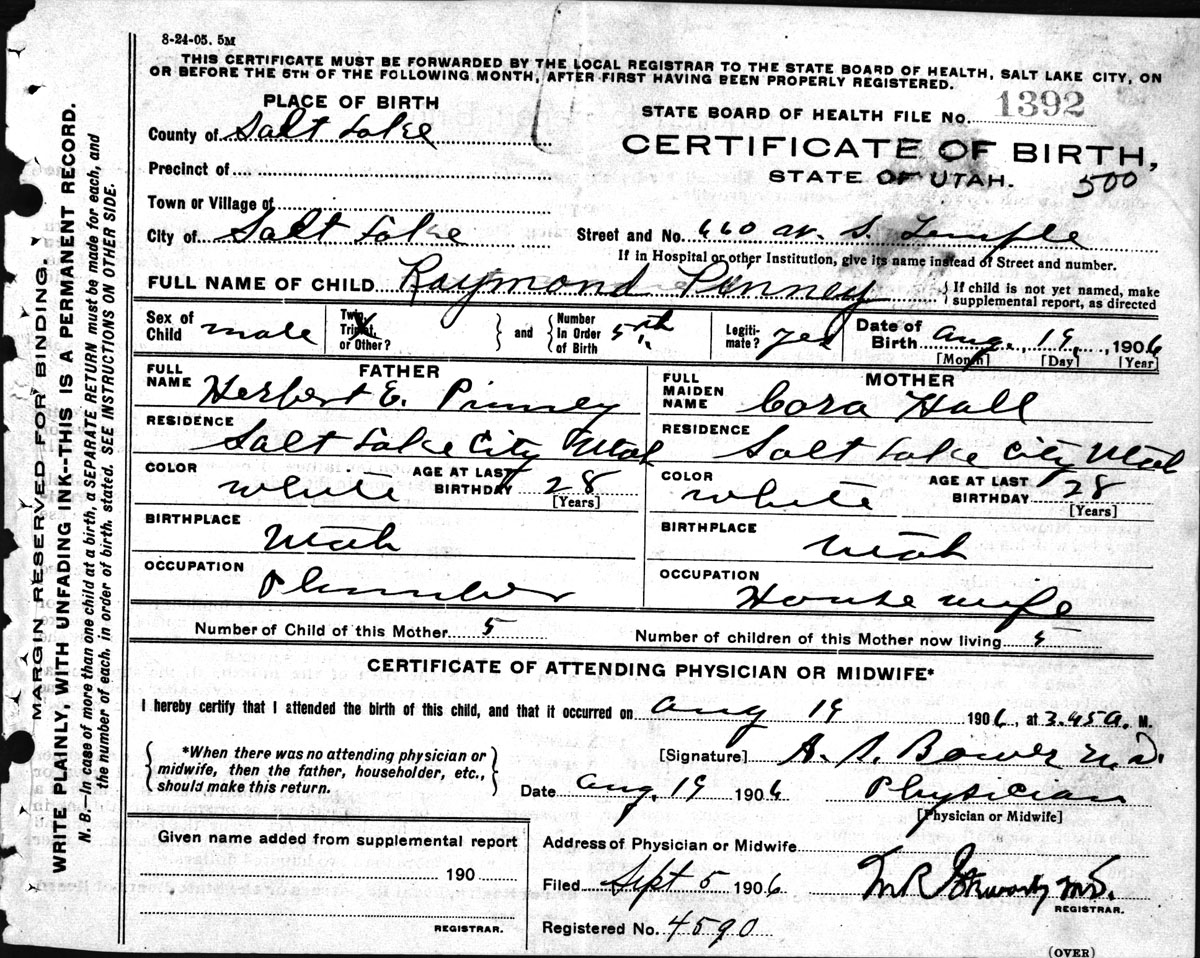 8-24-05. 5M
THIS CERTIFICATE MUST BE FORWARDED BY THE LOCAL REGISTRAR TO THE STATE BOARD OF HEALTH, SALT LAKE CITY, ON
OR BEFORE THE 5TH OF THE FOLLOWING MONTH, AFTER FIRST HAVING BEEN PROPERLY REGISTERED.
PLACE OF BIRTH
STATE BOARD OF HEALTH FILE No. 1392
County of Salt Lake
CERTIFICATE OF BIRTH,
STATE OF UTAH. 500
Precinct of
Town or Village of
City of Salt Lake Street and No. 660 W. S. Temple
If in Hospital or other Institution, give its name instead of Street and number.
FULL NAME OF CHILD Raymond Pinney { If child is not yet named, make
supplemental report, as directed
Sex of Child male Twin, Triplet, or Other? } and { Number In Order of Birth 5th Legitimate? yes Date of Birth Aug. 19, 1906
[Month] [Day] [Year]
FATHER MOTHER
FULL NAME Herbert E. Pinney FULL MAIDEN NAME Cora Hall
RESIDENCE Salt Lake City Utah RESIDENCE Salt Lake City Utah
COLOR white AGE AT LAST BIRTHDAY 28 [Years] COLOR white AGE AT LAST BIRTHDAY 28 [Years]
BIRTHPLACE Utah BIRTHPLACE Utah
OCCUPATION Plumber OCCUPATION House wife
Number of Child of this Mother 5 Number of children of this Mother now living
CERTIFICATE OF ATTENDING PHYSICIAN OR MIDWIFE*
I hereby certify that I attended the birth of this child, and that it occurred on Aug 19 1906, at 3.45 A. M.
{ *When there was no attending physician or
midwife, then the father, householder, etc.,
should make this return. }
[Signature] A. S. Bower M.D.
Date Aug. 19 1906 Physician
[Physician or Midwife]
Given name added from supplemental report
190
REGISTRAR.
Address of Physician or Midwife
Filed Sept 5 1906 M.D.
REGISTRAR.
Registered No. 4590
(OVER)
MARGIN RESERVED FOR BINDING.
WRITE PLAINLY, WITH UNFADING INK--THIS IS A PERMANENT RECORD.
N. B.--In case of more than one child at a birth, a SEPARATE RETURN must be made for each, and
the number of each, in order of birth, stated. SEE INSTRUCTIONS ON OTHER SIDE.